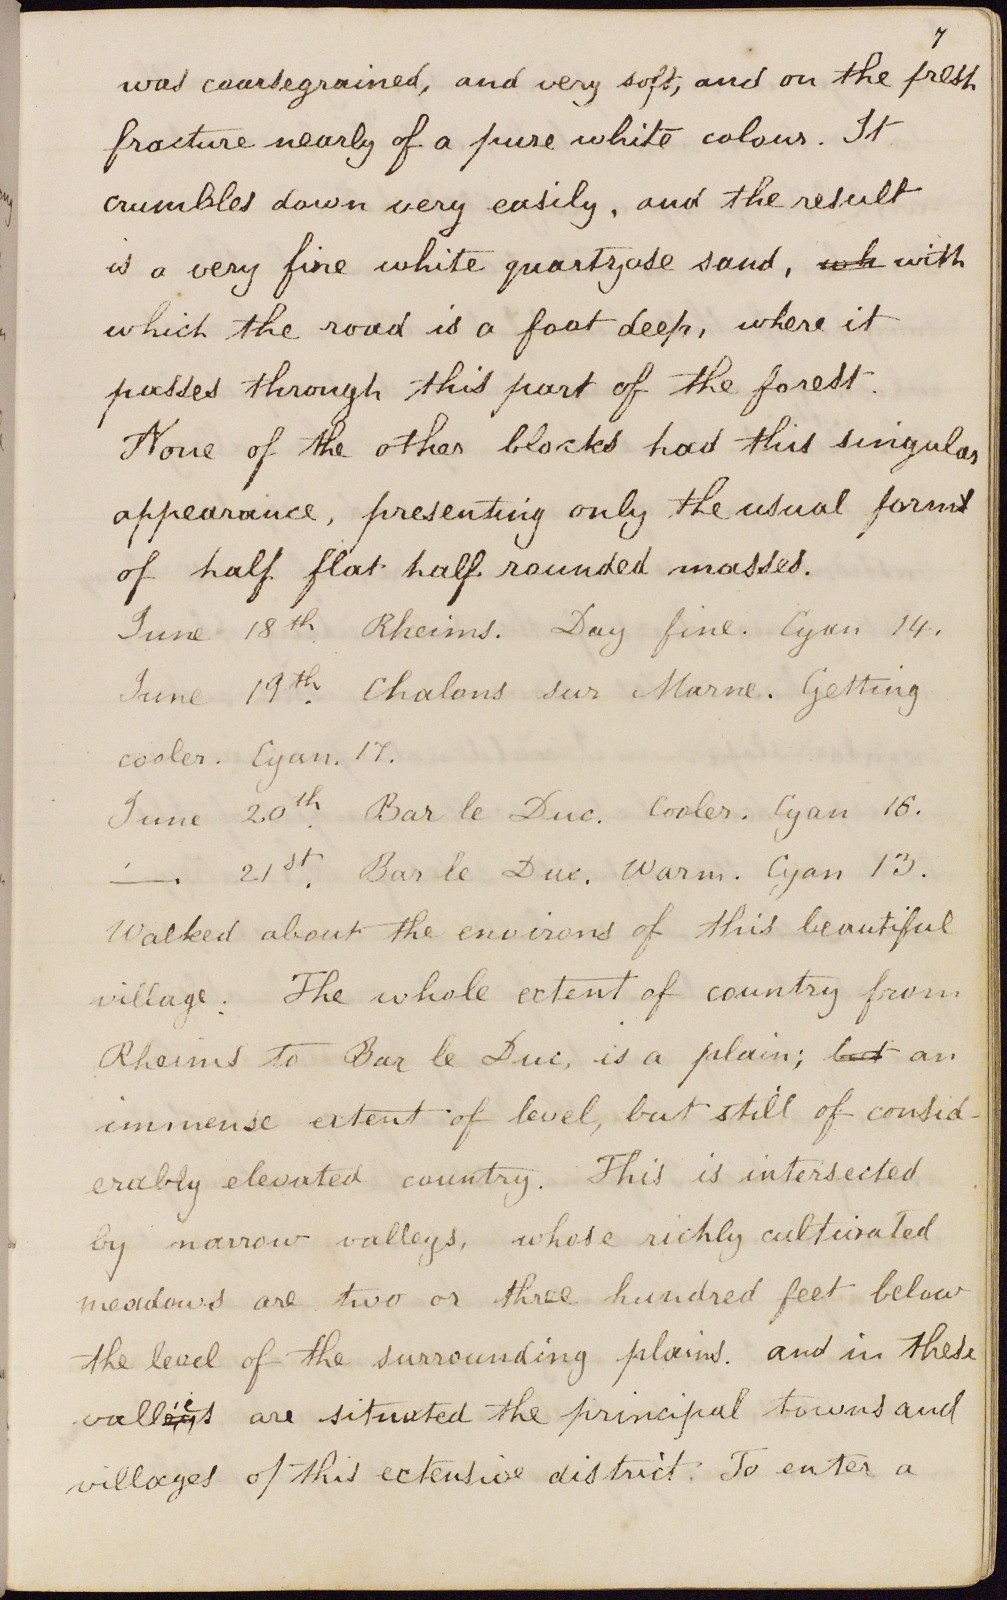 7
was coarsegrained, and very soft, and on the fresh
fracture nearly of a pure white colour. It
crumbles down very easily, and the result
is a very fine white quartzose sand, wh with
which the road is a foot deep, where it
passes through this part of the forest.
None of the other blocks had this singular
appearance, presenting only the usual forms
of half flat half rounded masses.
June 18th. Rheims. Day fine. Cyan 14.
June 19th. Chalons sur Marne. Getting
cooler. Cyan. 17.
June 20th. Bar le Duc. Cooler. Cyan 16.
—. 21st. Bar le Duc. Warm. Cyan 13.
Walked about the environs of this beautiful
village. The whole extent of country from
Rheims to Bar le Duc, is a plain; but an
immense extent of level, but still of consid-
erably elevated country. This is intersected
by narrow valleys, whose richly cultivated
meadows are two or three hundred feet below
the level of the surrounding plains. and in these
vallies are situated the principal towns and
villages of this extensive district. To enter a